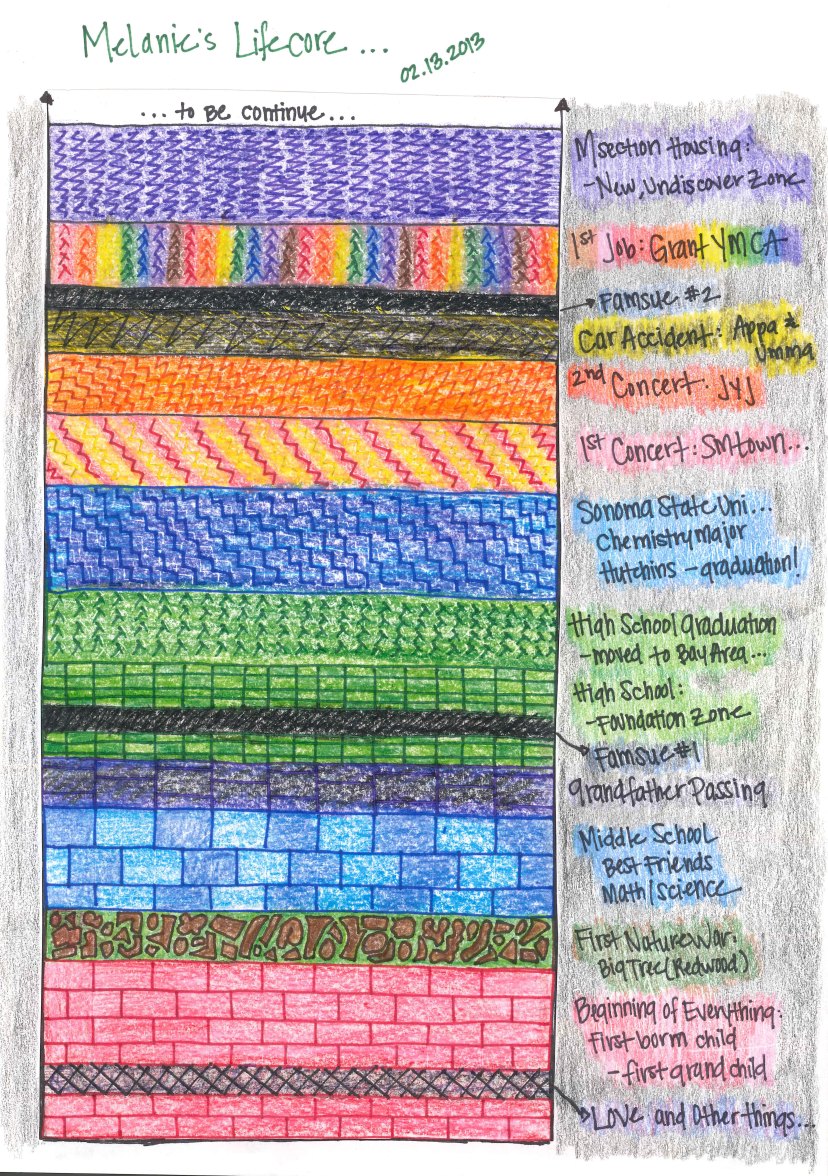 Melanie's Lifecore ...
02.13.2013
... to Be continue...
Msection Housing:
-New, Undiscover Zone
1st Job: Grant YMCA
Famsue #2
Car Accident: Appa &
Umma
2nd Concert: JYJ
1st Concert: SMtown...
Sonoma State Uni...
Chemistry Major
Hutchins - graduation!
High School graduation
-moved to Bay Area...
High School:
-Foundation Zone
Famsue #1
grandfather Passing
Middle School
Best Friends
Math/Science
First Nature War:
Big Tree (Redwood)
Beginning of Everything:
first borm child
-first grand child
LOVE and other things...